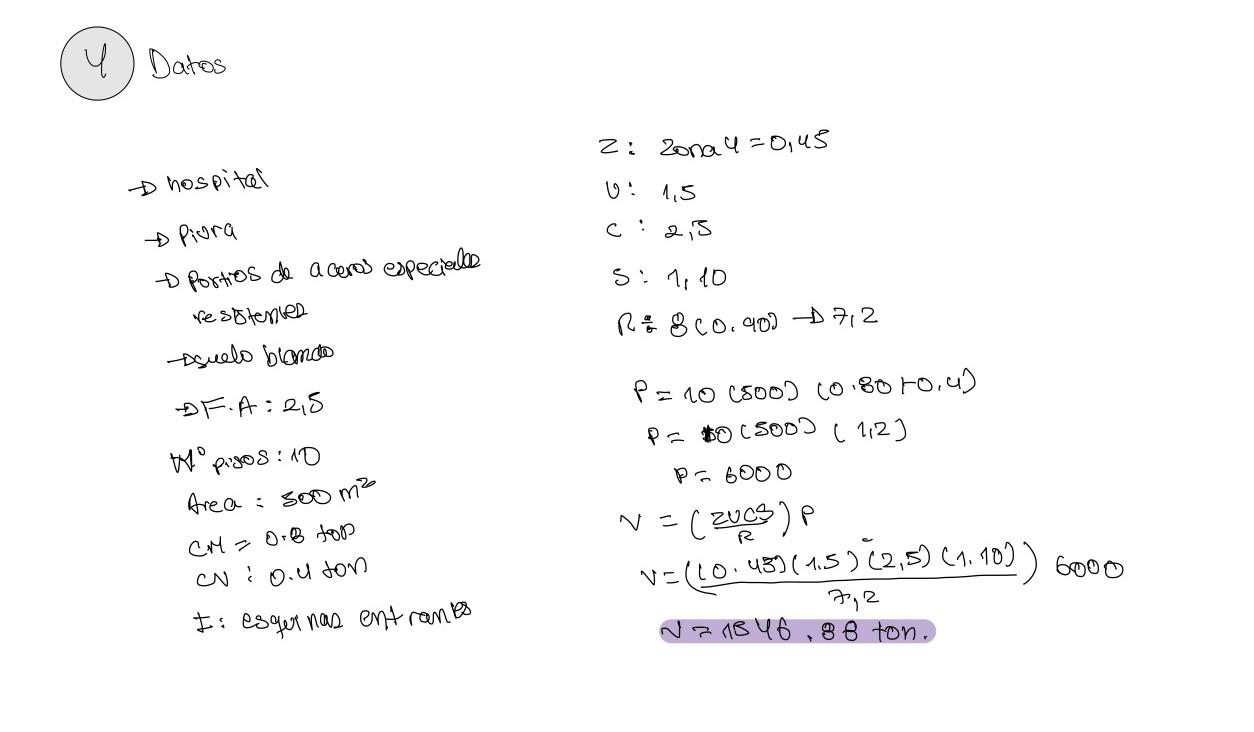 4 Datos
→ hospital
→ Piura
→ Portios de aceros especiales
resistentes
→ suelo blando
→ F.A : 2,5
N° pisos : 10
Area : 500 m²
CM = 0.8 ton
CV : 0.4 ton
I : esquinas entrantes
Z : Zona 4 = 0,45
U : 1,5
C : 2,5
S : 1,10
R = 8 (0.90) → 7,2
P = 10 (500) (0.80+0.4)
P = 10 (500) (1,2)
P = 6000
V = (ZUCS/R) P
V = ((0.45)(1.5)(2,5)(1.10)/7,2) 6000
V = 1546.88 ton.